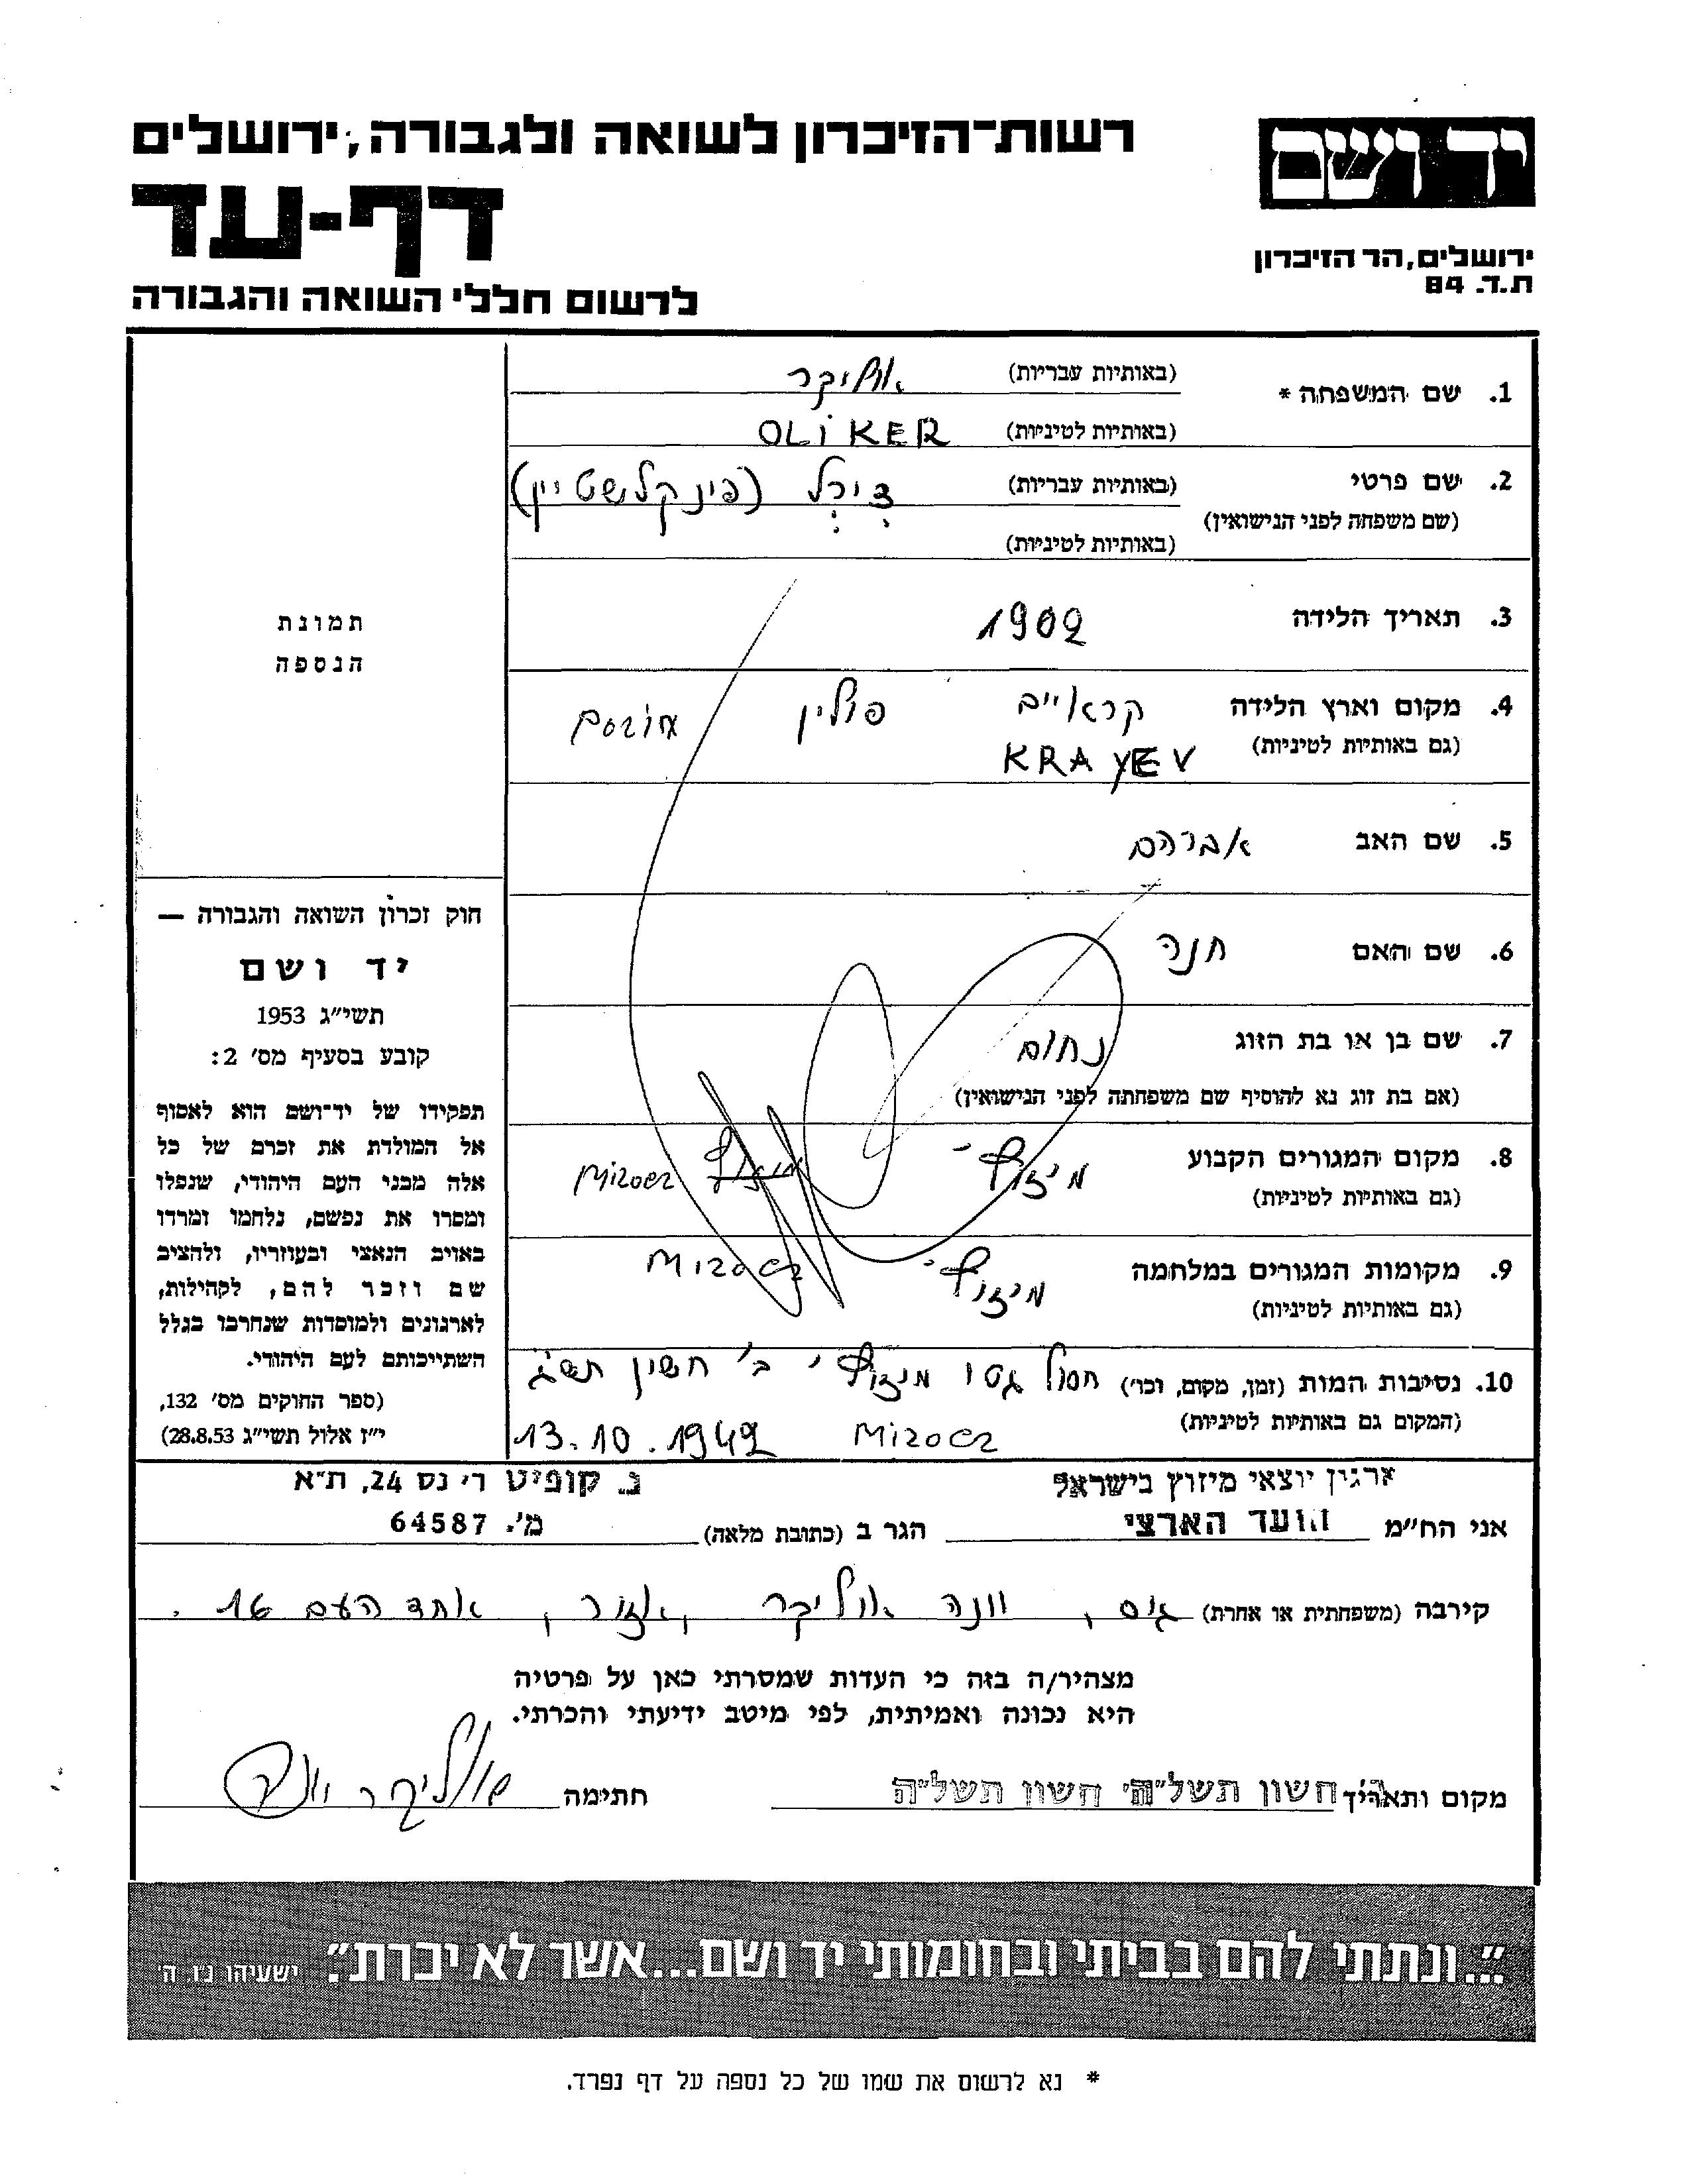 יד ושם
רשות-הזיכרון לשואה ולגבורה, ירושלים
דף-עד
ירושלים, הר הזיכרון
ת.ד. 84
לרשום חללי השואה והגבורה
1. שם המשפחה * (באותיות עבריות) אוליקר
(באותיות לטיניות) OLiKER
2. שם פרטי (באותיות עבריות) (פינקלשטיין)
(שם משפחה לפני הנישואין)
(באותיות לטיניות)
3. תאריך הלידה 1902
4. מקום וארץ הלידה קראייב פולין
(גם באותיות לטיניות) KRAYEV
5. שם האב אברהם
6. שם האם חנה
7. שם בן או בת הזוג נחום
(אם בת זוג נא להוסיף שם משפחתה לפני הנישואין)
8. מקום המגורים הקבוע מיזוץ' Mizocz
(גם באותיות לטיניות)
9. מקומות המגורים במלחמה מיזוץ' Mizocz
(גם באותיות לטיניות)
10. נסיבות המות (זמן, מקום, וכו') חסול גטו מיזוץ' ב' חשון תש"ג
(המקום גם באותיות לטיניות) Mizocz 13.10.1942
תמונת
הנספה
חוק זכרון השואה והגבורה —
יד ושם
תשי"ג 1953
קובע בסעיף מס' 2:
תפקידו של יד־ושם הוא לאסוף
אל המולדת את זכרם של כל
אלה מבני העם היהודי, שנפלו
ומסרו את נפשם, נלחמו ומרדו
באויב הנאצי ובעוזריו, ולהציב
שם וזכר להם, לקהילות,
לארגונים ולמוסדות שנחרבו בגלל
השתייכותם לעם היהודי.
(ספר החוקים מס' 132,
י"ז אלול תשי"ג 28.8.53)
ארגון יוצאי מיזוץ בישראל נ. קופיט ר' נס 24, ת"א
אני הח"מ הועד הארצי הגר ב (כתובת מלאה) מ'. 64587
קירבה (משפחתית או אחרת) גיס, וונה אוליקר, אזור, אחד העם 16.
מצהיר/ה בזה כי העדות שמסרתי כאן על פרטיה
היא נכונה ואמיתית, לפי מיטב ידיעתי והכרתי.
מקום ותאריך חשון תשל"ה חשון תשל"ה חתימה אוליקר
"...ונתתי להם בביתי ובחומותי יד ושם...אשר לא יכרת". ישעיהו נ"ו, ה'
* נא לרשום את שמו של כל נספה על דף נפרד.